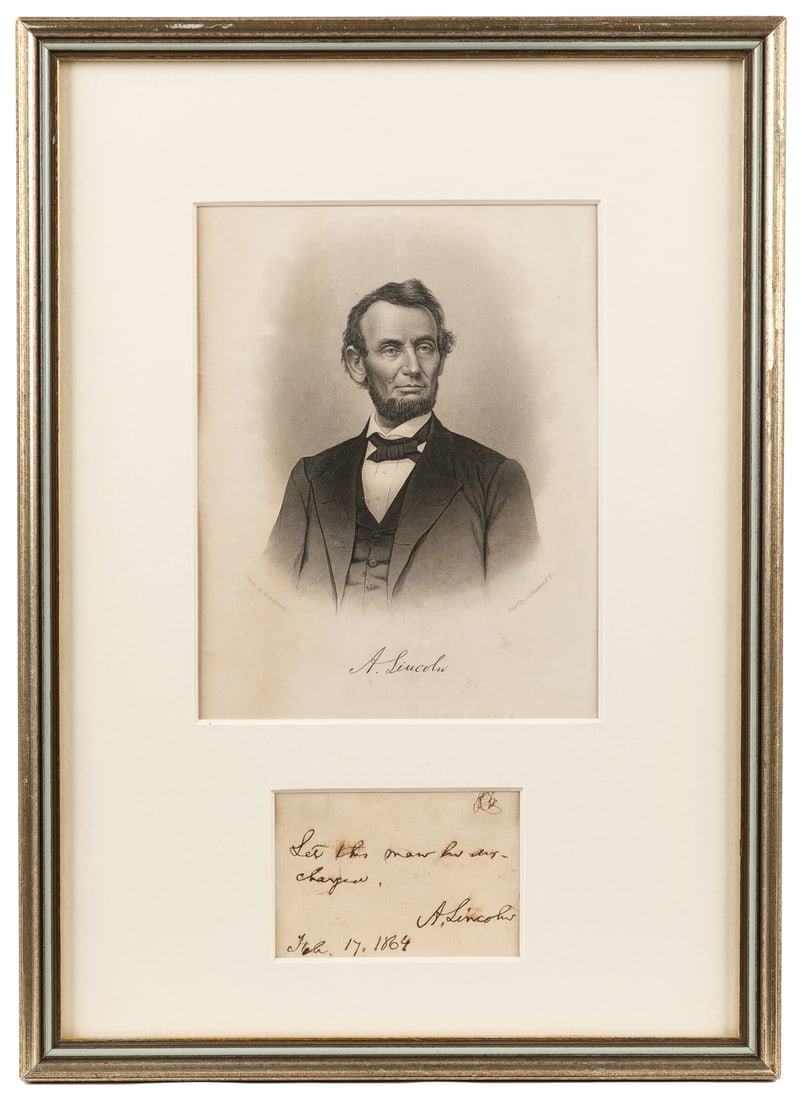 A. Lincoln
Let this man be dis-
charged.
A. Lincoln
Feb. 17. 1864